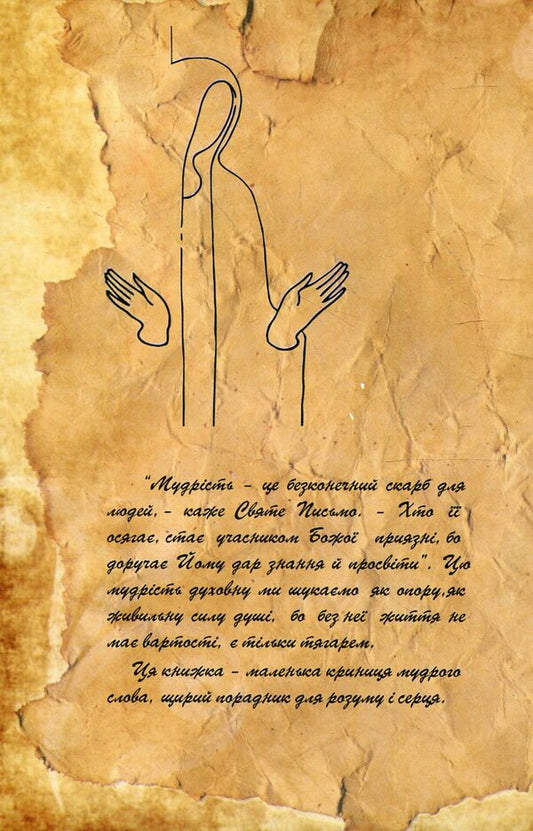 "Мудрість - це безконечний скарб для
людей, - каже Святе Письмо. - Хто її
осягає, стає учасником Божої приязні, бо
доручає Йому дар знання й просвіти". Цю
мудрість духовну ми шукаємо як опору, як
живильну силу душі, бо без неї життя не
має вартості, є тільки тягарем.
Ця книжка - маленька криниця мудрого
слова, щирий порадник для розуму і серця.